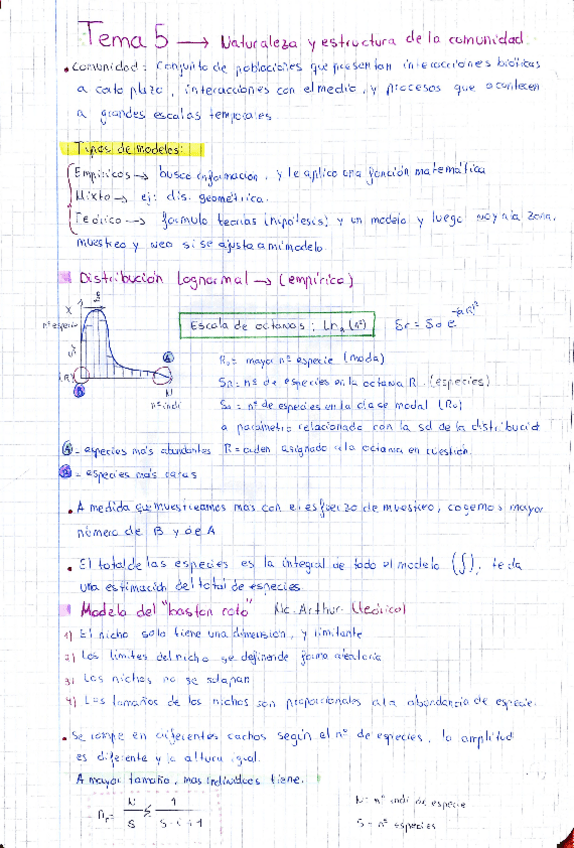 Tema 5 → Naturaleza y estructura de la comunidad
• Comunidad: conjunto de poblaciones que presentan interacciones bióticas
a corto plazo, interacciones con el medio, y procesos que acontecen
a grandes escalas temporales
Tipos de modelos:
Empíricos → busco información, y le aplico una función matemática
Mixto → ej: dis. geométrica.
Teórico → formulo teorías (hipótesis) y un modelo y luego voy a la zona,
muestreo y veo si se ajusta a mi modelo.
Distribución Lognormal → (empírico)
X
nº especie
Escala de octavas:
N
nº indi
A
B
R₀ = mayor nº especie (moda)
SR = nº de especies en la octava R (especies)
S₀ = nº de especies en la clase modal (R₀)
a parámetro relacionado con la sd de la distribució
A - especies más abundantes R = orden asignado a la octava en cuestión.
B - especies más raras
• A medida que muestreamos más con el esfuerzo de muestreo, cogemos mayor
número de B y de A
• El total de las especies es la integral de todo el modelo (∫), te da
una estimación del total de especies
Modelo del "baston roto" Mc. Arthur (teórico)
1) El nicho solo tiene una dimensión, y limitante
2) Los límites del nicho se definen de forma aleatoria
3) Los nichos no se solapan
4) Los tamaños de los nichos son proporcionales a la abundancia de especie.
• Se rompe en diferentes cachos según el nº de especies, la amplitud
es diferente y la altura igual.
A mayor tamaño, mas individuos tiene.
N = nº indi de especie
S = nº especies